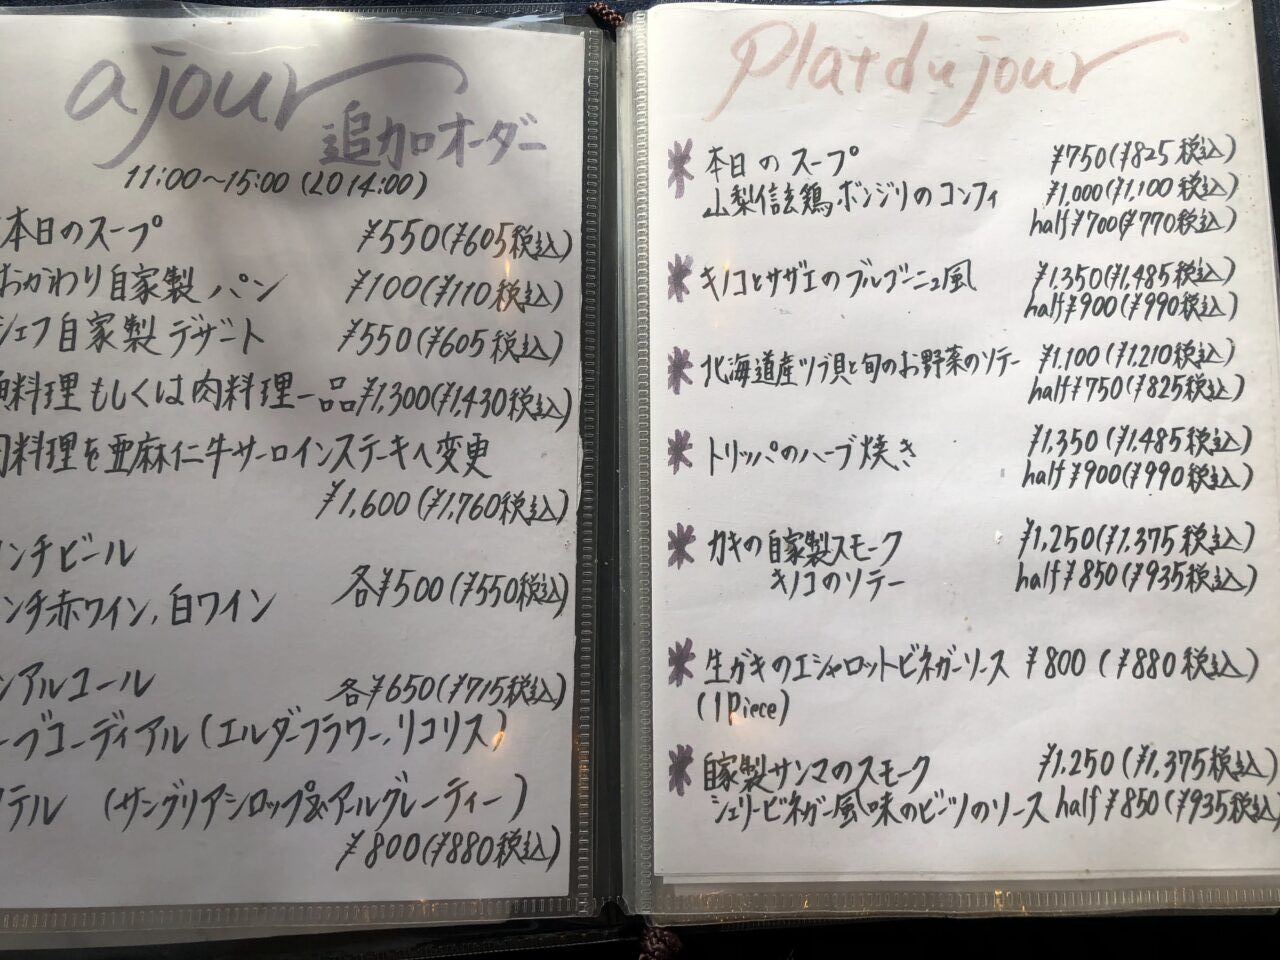 ajour
追加オーダー
11:00〜15:00 (LO 14:00)
本日のスープ ¥550(¥605税込)
おかわり自家製パン ¥100(¥110税込)
シェフ自家製デザート ¥550(¥605税込)
料理もしくは肉料理一品 ¥1,300(¥1,430税込)
料理を亜麻仁牛サーロインステーキへ変更
¥1,600(¥1,760税込)
ンチビール
ンチ赤ワイン,白ワイン 各¥500(¥550税込)
ンアルコール 各¥650(¥715税込)
ーブコーディアル(エルダーフラワー,リコリス)
テル (サングリアシロップ&アールグレーティー)
¥800(¥880税込)
Plat du jour
本日のスープ ¥750(¥825税込)
山梨信玄鶏ボンジリのコンフィ ¥1,000(¥1,100税込)
half ¥700(¥770税込)
キノコとサザエのブルゴーニュ風 ¥1,350(¥1,485税込)
half ¥900(¥990税込)
北海道産ツブ貝と旬のお野菜のソテー ¥1,100(¥1,210税込)
half ¥750(¥825税込)
トリッパのハーブ焼き ¥1,350(¥1,485税込)
half ¥900(¥990税込)
カキの自家製スモーク ¥1,250(¥1,375税込)
キノコのソテー half ¥850(¥935税込)
生ガキのエシャロットビネガーソース ¥800(¥880税込)
(1 Piece)
自家製サンマのスモーク ¥1,250(¥1,375税込)
シェリービネガー風味のビーツのソース half ¥850(¥935税込)